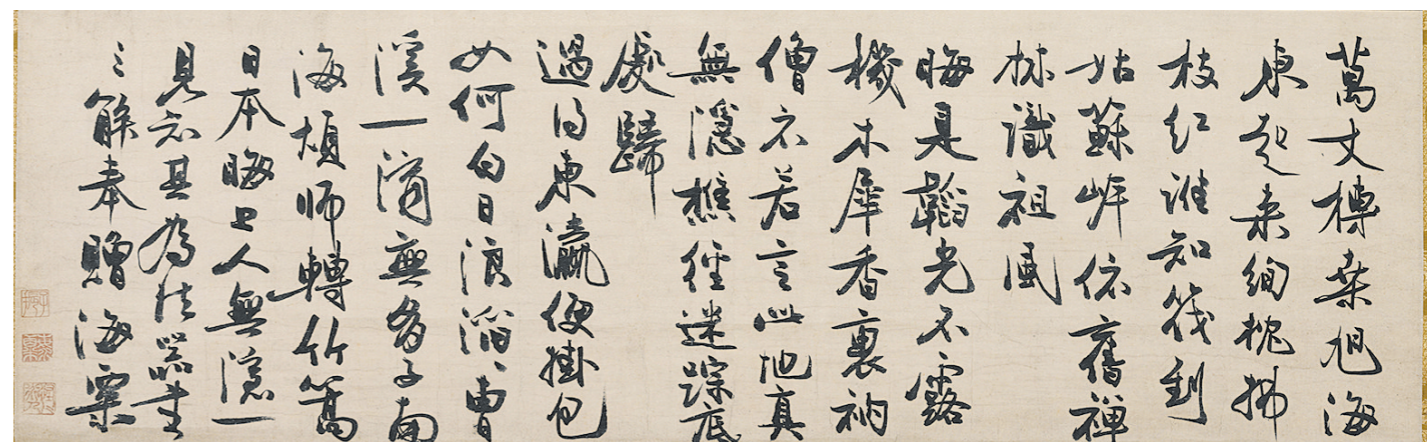 萬丈榑桑旭海
東起来絢拂
枝紅誰知筏到
姑蘇岸依舊禅
林識祖風
晦是韜光不露
機木犀香裏衲
僧衣若言此地真
無隱樵徑迷踪底
處歸
過得東瀛便掛包
如何白日浪滔〻曹
溪一滴無多子南
海煩師轉竹篙
日本晦上人無隱一
見知其為法器書
三解奉贈海粟